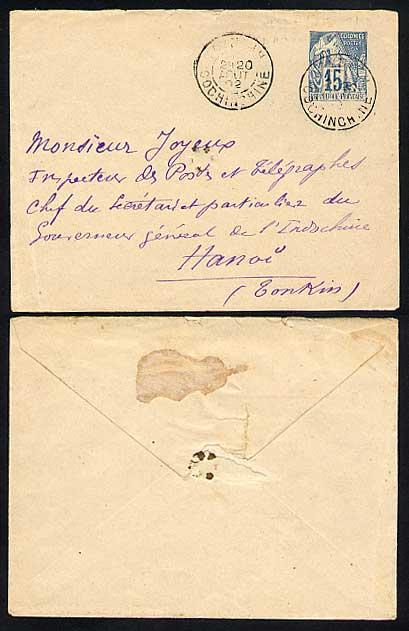 COLONIES
POSTES
15
20
AOUT
COCHINCHINE
COCHINCHINE
Monsieur Joyeux
Inspecteur des Postes et Télégraphes
Chef du Secrétariat particulier du
Gouverneur général de l'Indochine
Hanoï
(Tonkin)